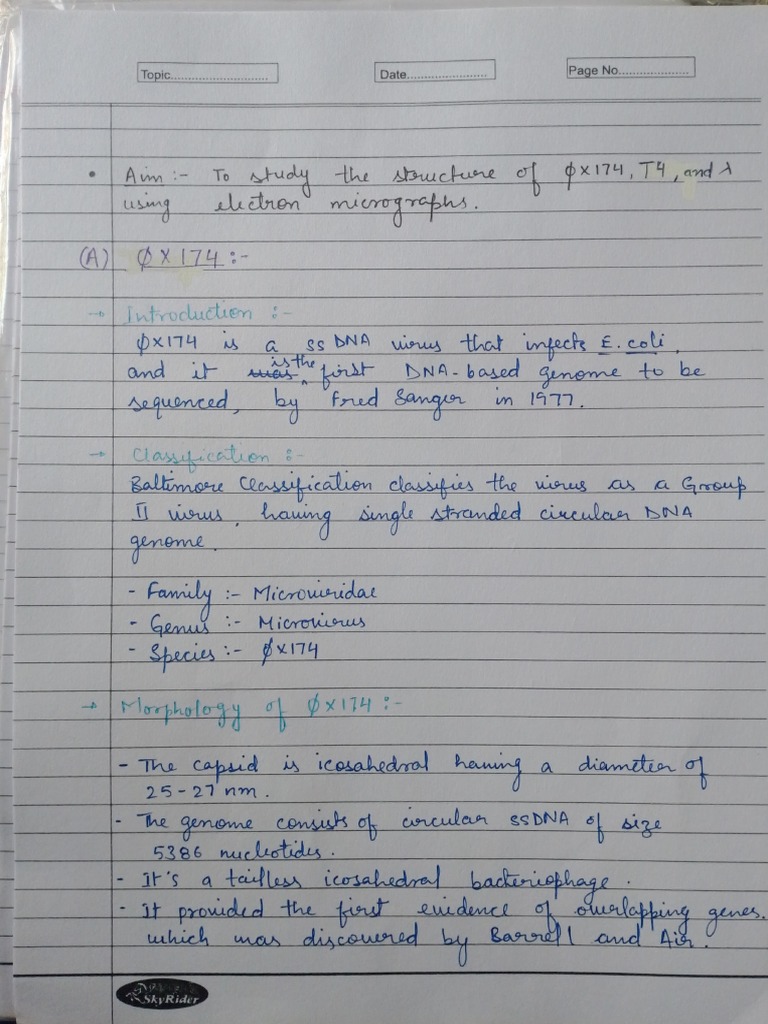 Topic............................ Date........................ Page No.....................
• Aim :- To study the structure of ϕX174, T4, and λ
using electron micrographs.
(A) ϕX174 :-
→ Introduction :-
ϕX174 is a ssDNA virus that infects E. coli,
and it is the first DNA-based genome to be
sequenced, by Fred Sanger in 1977.
→ Classification :-
Baltimore Classification classifies the virus as a Group
II virus, having single stranded circular DNA
genome.
- Family :- Microviridae
- Genus :- Microvirus
- Species :- ϕX174
→ Morphology of ϕX174 :-
- The capsid is icosahedral having a diameter of
25-27 nm.
- The genome consists of circular ssDNA of size
5386 nucleotides.
- It's a tailless icosahedral bacteriophage.
- It provided the first evidence of overlapping genes.
which was discovered by Barrell and Air.
SkyRider